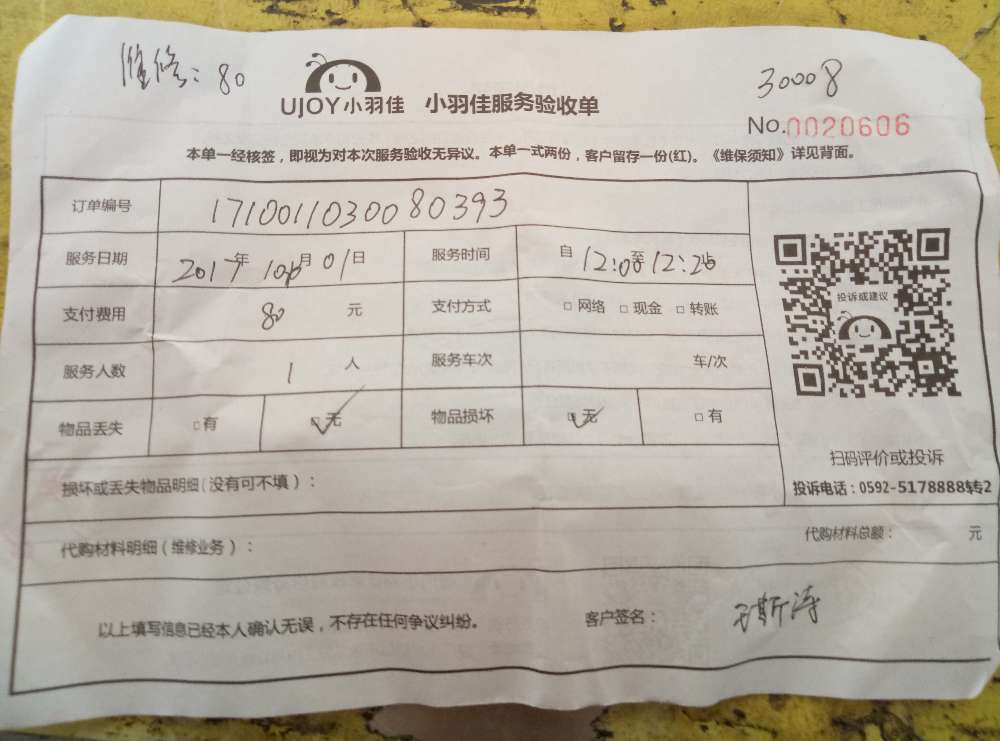 维修：80
30008
UJOY小羽佳 小羽佳服务验收单
No.0020606
本单一经核签，即视为对本次服务验收无异议。本单一式两份，客户留存一份(红)。《维保须知》详见背面。
订单编号 1710011030080393
服务日期 2017年10月01日 服务时间 自12:00至12:26
支付费用 80 元 支付方式 □ 网络 □ 现金 □ 转账
投诉或建议
服务人数 1 人 服务车次 车/次
物品丢失 □有 □无 物品损坏 □无 □有
扫码评价或投诉
损坏或丢失物品明细（没有可不填）：
投诉电话：0592-5178888转2
代购材料明细（维修业务）：
代购材料总额： 元
以上填写信息已经本人确认无误，不存在任何争议纠纷。 客户签名：